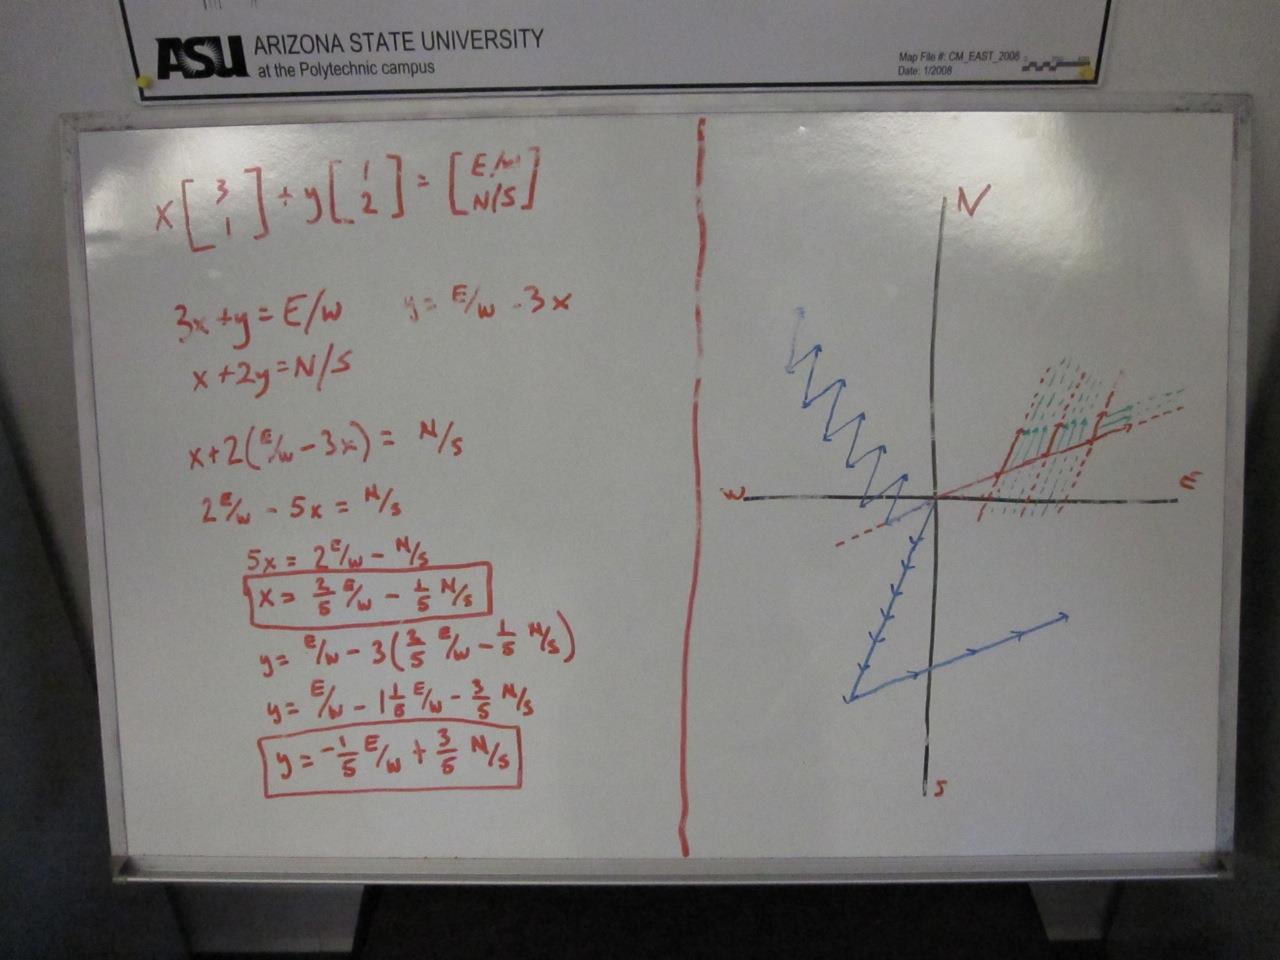 ASU ARIZONA STATE UNIVERSITY
at the Polytechnic campus
Map File #: CM_EAST_2008
Date: 1/2008
x[3 1] + y[1 2] = [E/W N/S]
3x+y=E/W y= E/W -3x
x+2y=N/S
x+2(E/W-3x) = N/S
2E/W - 5x = N/S
5x= 2E/W - N/S
x= 2/5 E/W - 1/5 N/S
y= E/W - 3(2/5 E/W - 1/5 N/S)
y= E/W - 1 1/5 E/W - 3/5 N/S
y= -1/5 E/W + 3/5 N/S
N
W
E
S